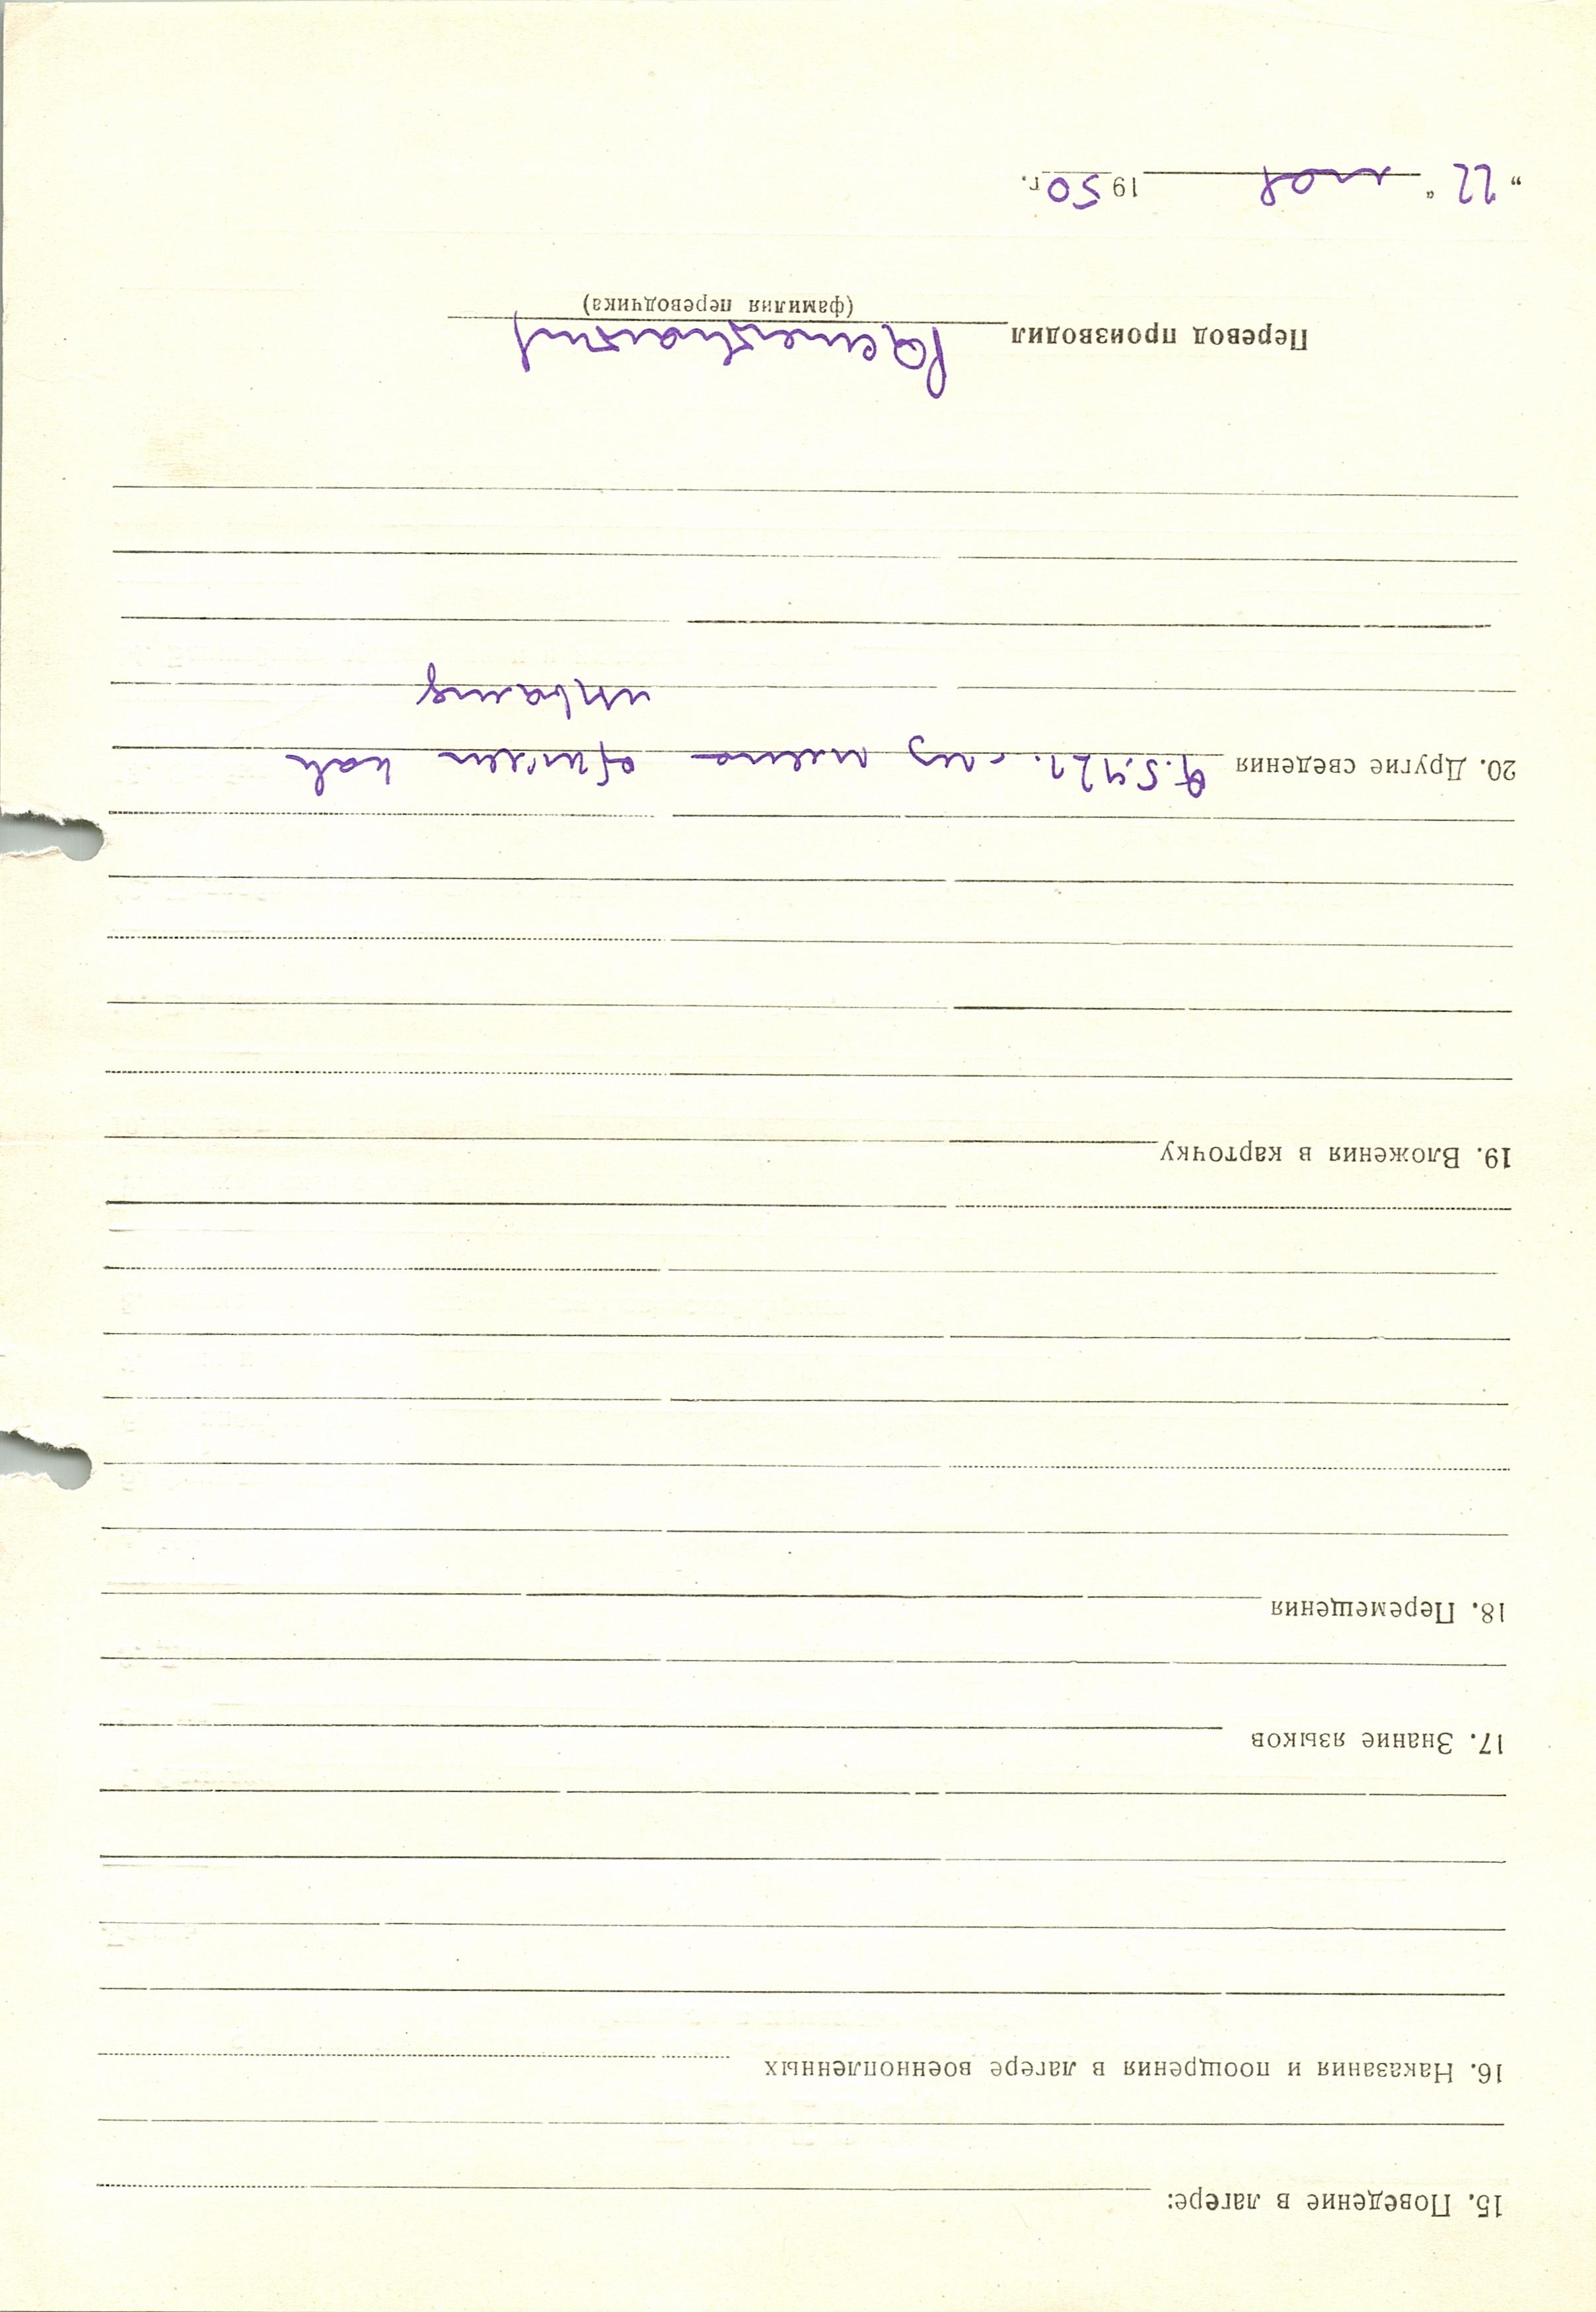 15. Поведение в лагере:
16. Наказания и поощрения в лагере военнопленных
17. Знание языков
18. Перемещения
19. Вложения в карточку
20. Другие сведения 9.5.42г. из плена
Перевод производил
(фамилия переводчика)
„22“ мая 1950 г.